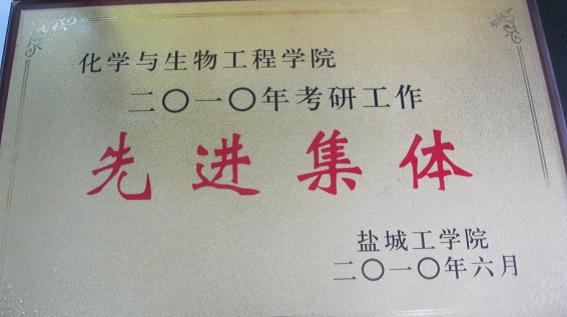 化学与生物工程学院
二〇一〇年考研工作
先进集体
盐城工学院
二〇一〇年六月